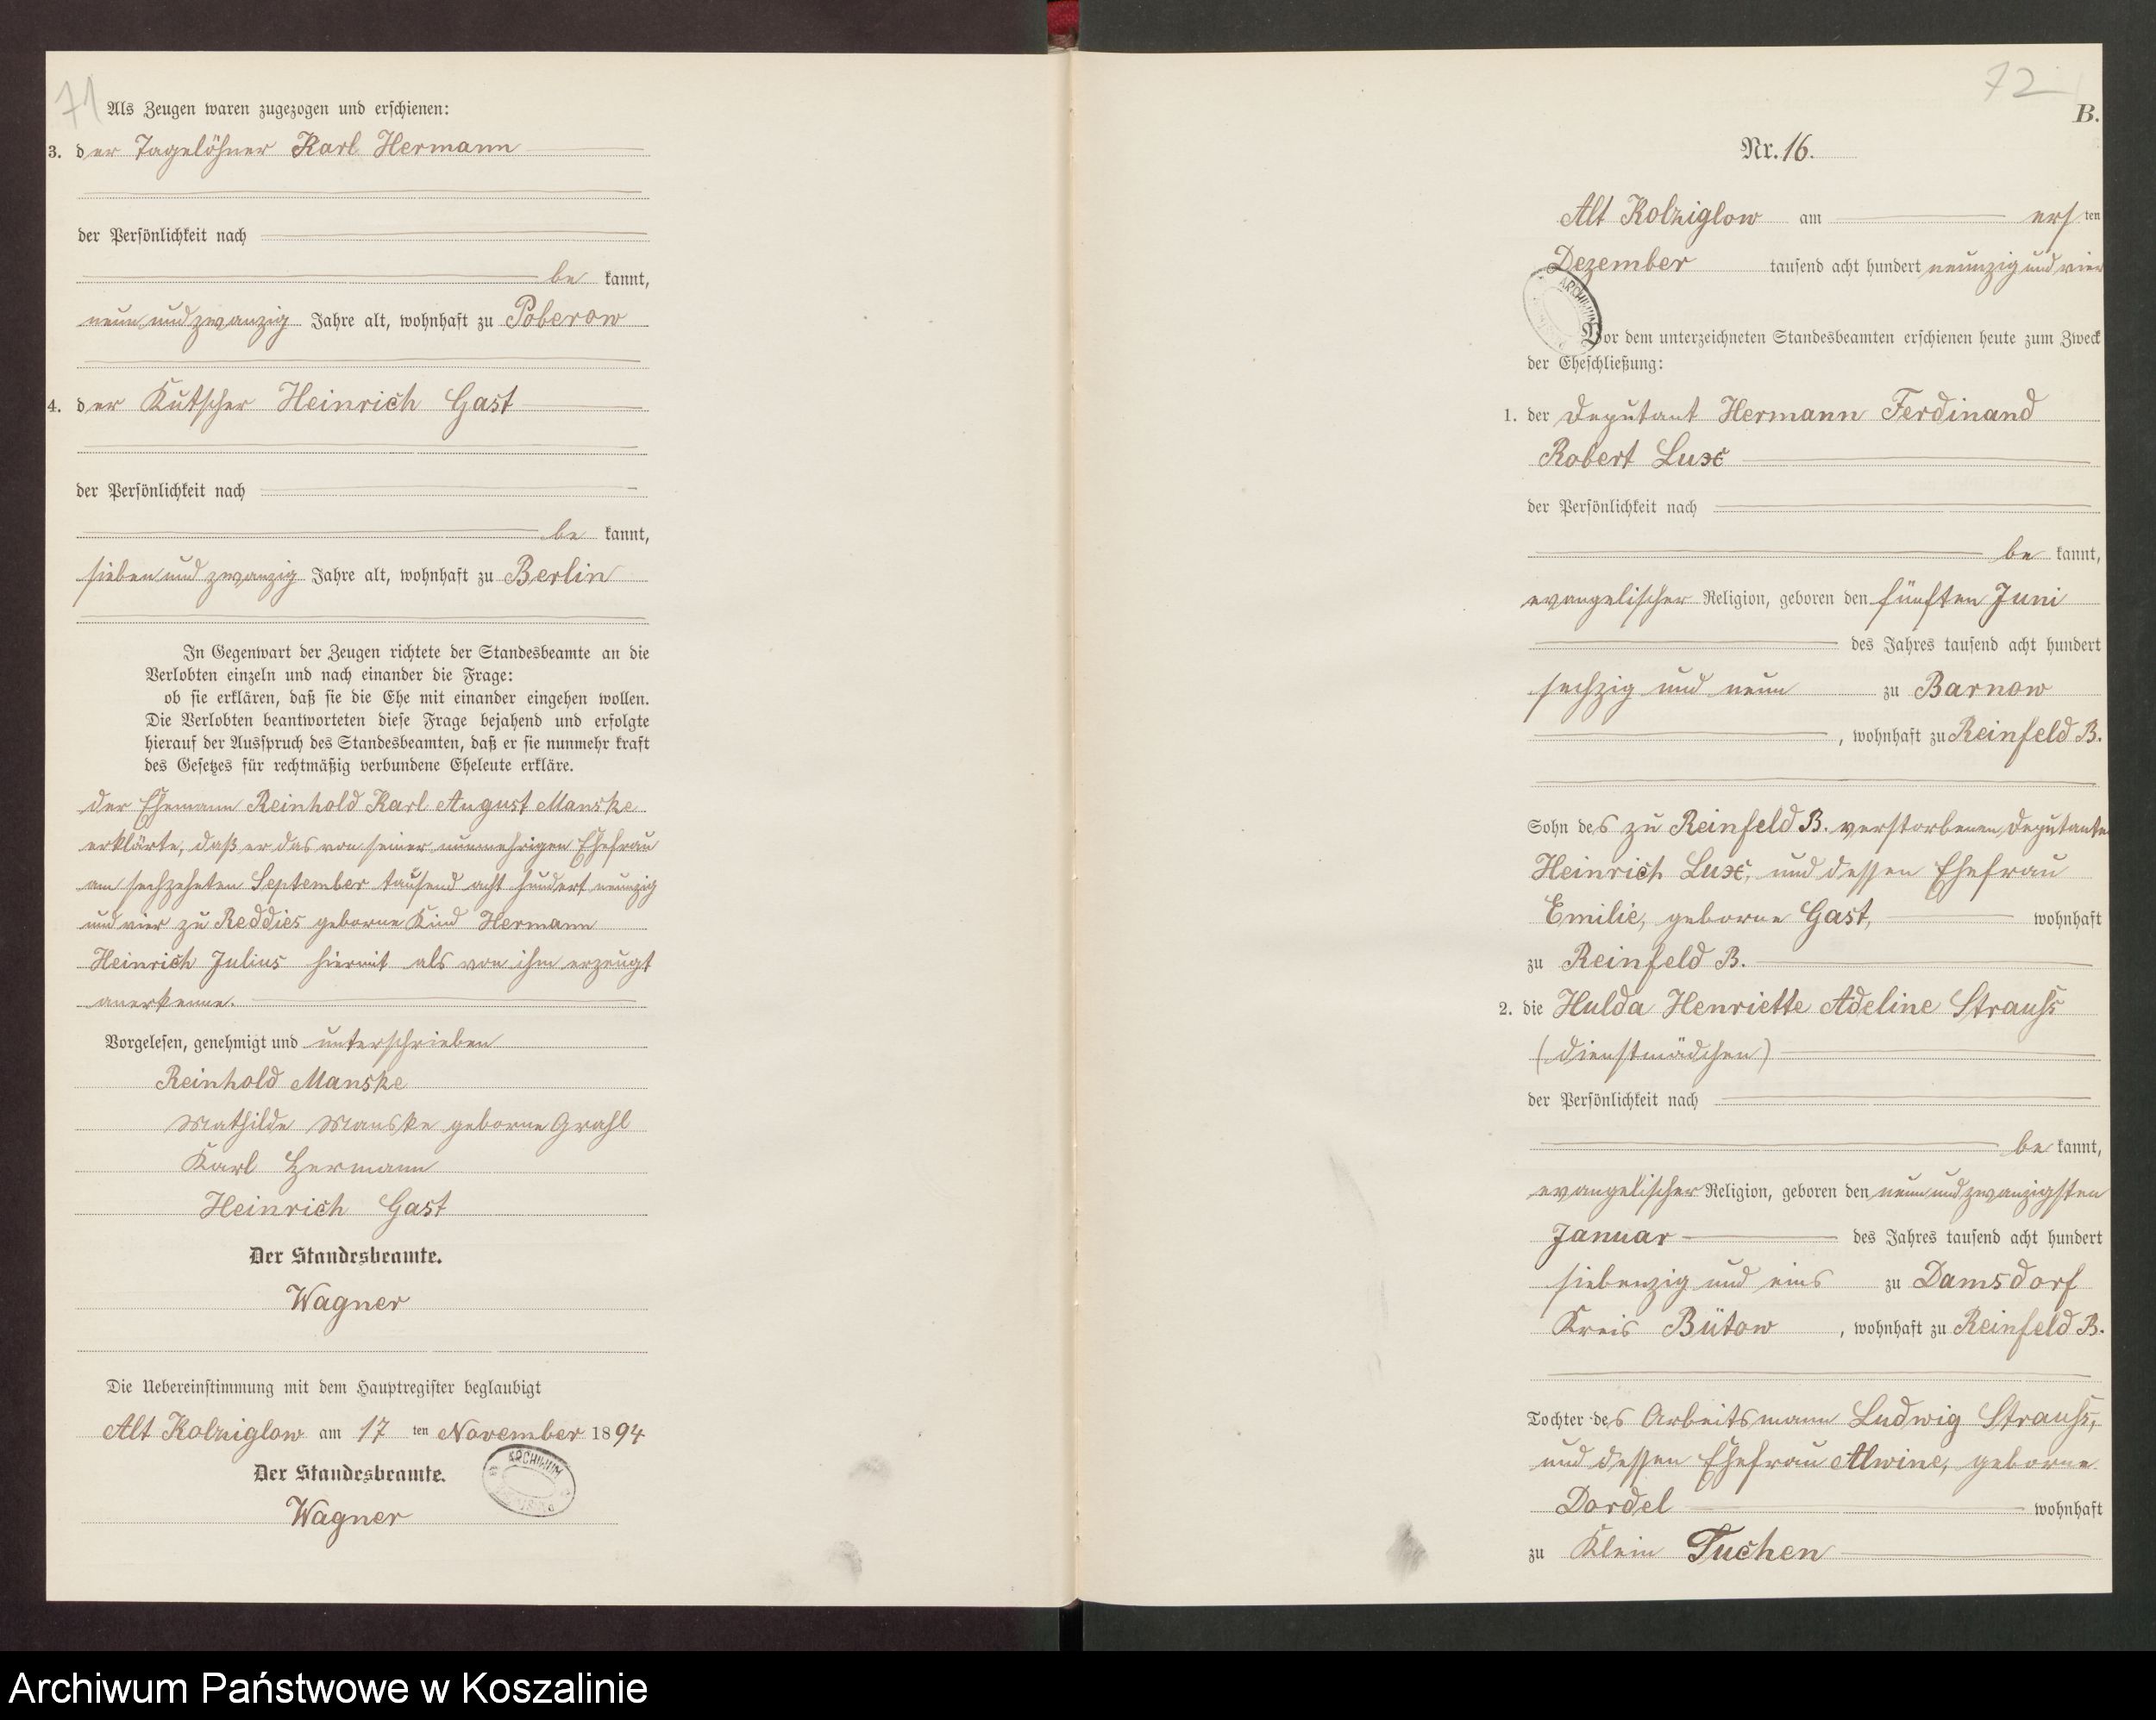 71
Als Zeugen waren zugezogen und erschienen:
3. der Tagelöhner Karl Hermann
der Persönlichkeit nach
be kannt,
neun und zwanzig Jahre alt, wohnhaft zu Poberow
4. der Kutscher Heinrich Gast
der Persönlichkeit nach
be kannt,
sieben und zwanzig Jahre alt, wohnhaft zu Berlin
In Gegenwart der Zeugen richtete der Standesbeamte an die
Verlobten einzeln und nach einander die Frage:
ob sie erklären, daß sie die Ehe mit einander eingehen wollen.
Die Verlobten beantworteten diese Frage bejahend und erfolgte
hierauf der Ausspruch des Standesbeamten, daß er sie nunmehr kraft
des Gesetzes für rechtmäßig verbundene Eheleute erkläre.
Der Ehemann Reinhold Karl August Manske
erklärte, daß er das von seiner nunmehrigen Ehefrau
am sechzehnten September tausend acht hundert neunzig
und vier zu Reddies geborne Kind Hermann
Heinrich Julius hiermit als von ihm erzeugt
anerkenne.
Vorgelesen, genehmigt und unterschrieben
Reinhold Manske
Mathilde Manske geborne Grahl
Karl Hermann
Heinrich Gast
Der Standesbeamte.
Wagner
Die Uebereinstimmung mit dem Hauptregister beglaubigt
Alt Kolziglow am 17 ten November 1894
Der Standesbeamte.
Wagner
ARCHIWUM
72
B.
Nr. 16.
Alt Kolziglow am ers ten
Dezember tausend acht hundert neunzig und vier
ARCHIWUM
Vor dem unterzeichneten Standesbeamten erschienen heute zum Zweck
der Eheschließung:
1. der Deputant Hermann Ferdinand
Robert Lux
der Persönlichkeit nach
be kannt,
evangelischer Religion, geboren den fünften Juni
des Jahres tausend acht hundert
sechzig und neun zu Barnow
, wohnhaft zu Reinfeld B.
Sohn des zu Reinfeld B. verstorbenen Deputanten
Heinrich Lux, und dessen Ehefrau
Emilie, geborne Gast, wohnhaft
zu Reinfeld B.
2. die Hulda Henriette Adeline Strauss
(Dienstmädchen)
der Persönlichkeit nach
be kannt,
evangelischer Religion, geboren den neun und zwanzigsten
Januar des Jahres tausend acht hundert
siebenzig und eins zu Damsdorf
Kreis Bütow , wohnhaft zu Reinfeld B.
Tochter des Arbeitsmann Ludwig Strauss,
und dessen Ehefrau Alwine, geborne
Dordel wohnhaft
zu Klein Tuchen
Archiwum Państwowe w Koszalinie